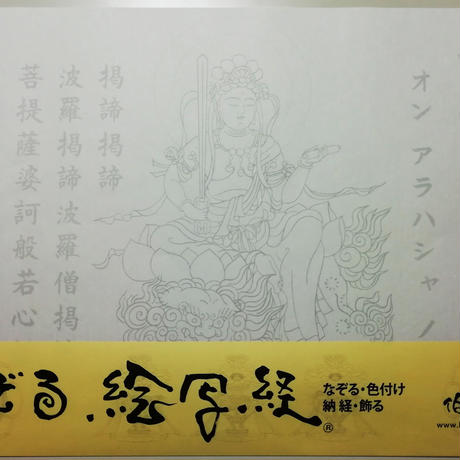 オン アラハシャ ノ
掲諦掲諦
波羅掲諦波羅僧掲
菩提薩婆訶般若心
ぞる 絵写経®
なぞる・色付け
納経・飾る
www.